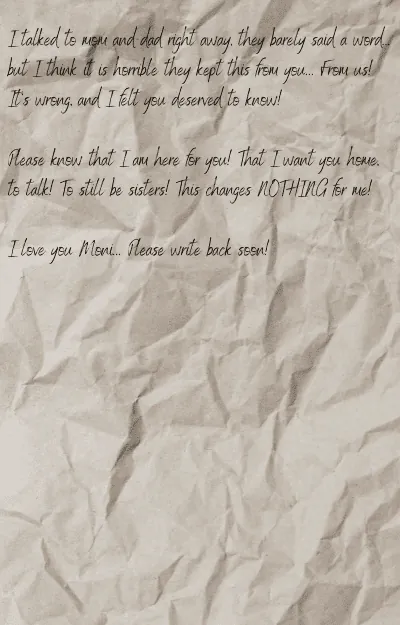 I talked to mom and dad right away, they barely said a word...
but I think it is horrible they kept this from you... From us!
It's wrong, and I felt you deserved to know!
Please know that I am here for you! That I want you home,
to talk! To still be sisters! This changes NOTHING for me!
I love you Moni... Please write back soon!